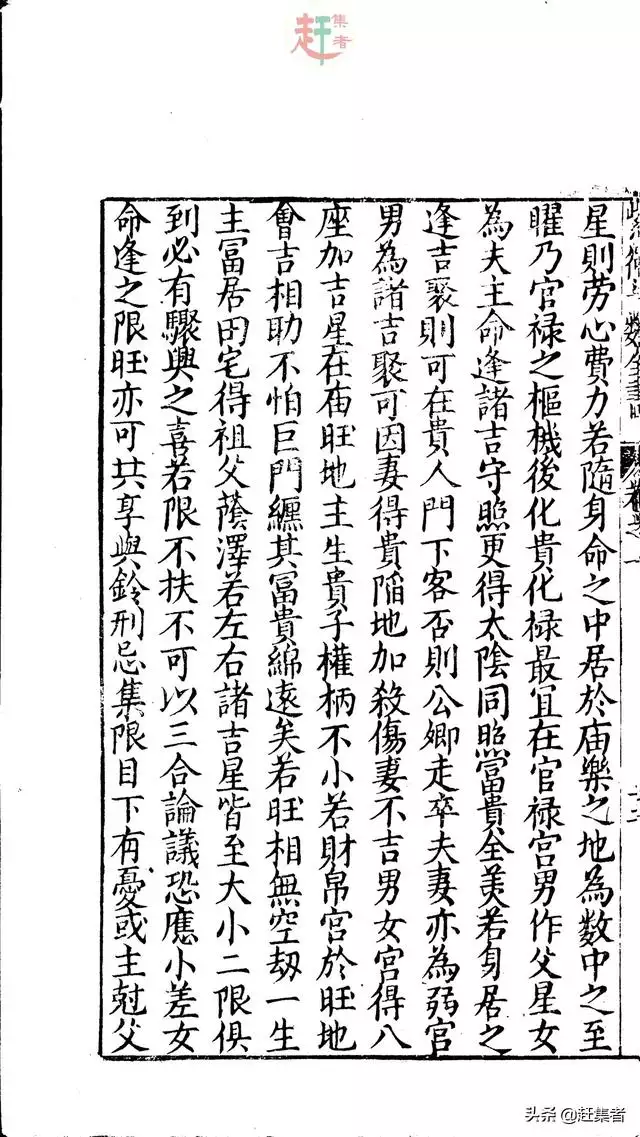 赶集者
星則劳心費力若隨身命之中居於庙樂之地為数中之至
曜乃官禄之樞機後化貴化禄最宜在官禄宫男作父星女
為夫主命逢諸吉守照更得太陰同照富貴全美若身居之
逢吉聚則可在貴人門下客否則公卿走卒夫妻亦為弱宫
男為諸吉聚可因妻得貴陷地加殺傷妻不吉男女宫得八
座加吉星在庙旺地主生貴子權柄不小若財帛宫於旺地
會吉相助不怕巨門纏其冨貴綿遠矣若旺相無空劫一生
主冨居田宅得祖父蔭澤若左右諸吉星皆至大小二限俱
到必有驟興之喜若限不扶不可以三合論議恐應小差女
命逢之限旺亦可共享與鈴刑忌集限目下有憂或主尅父
头条 @赶集者